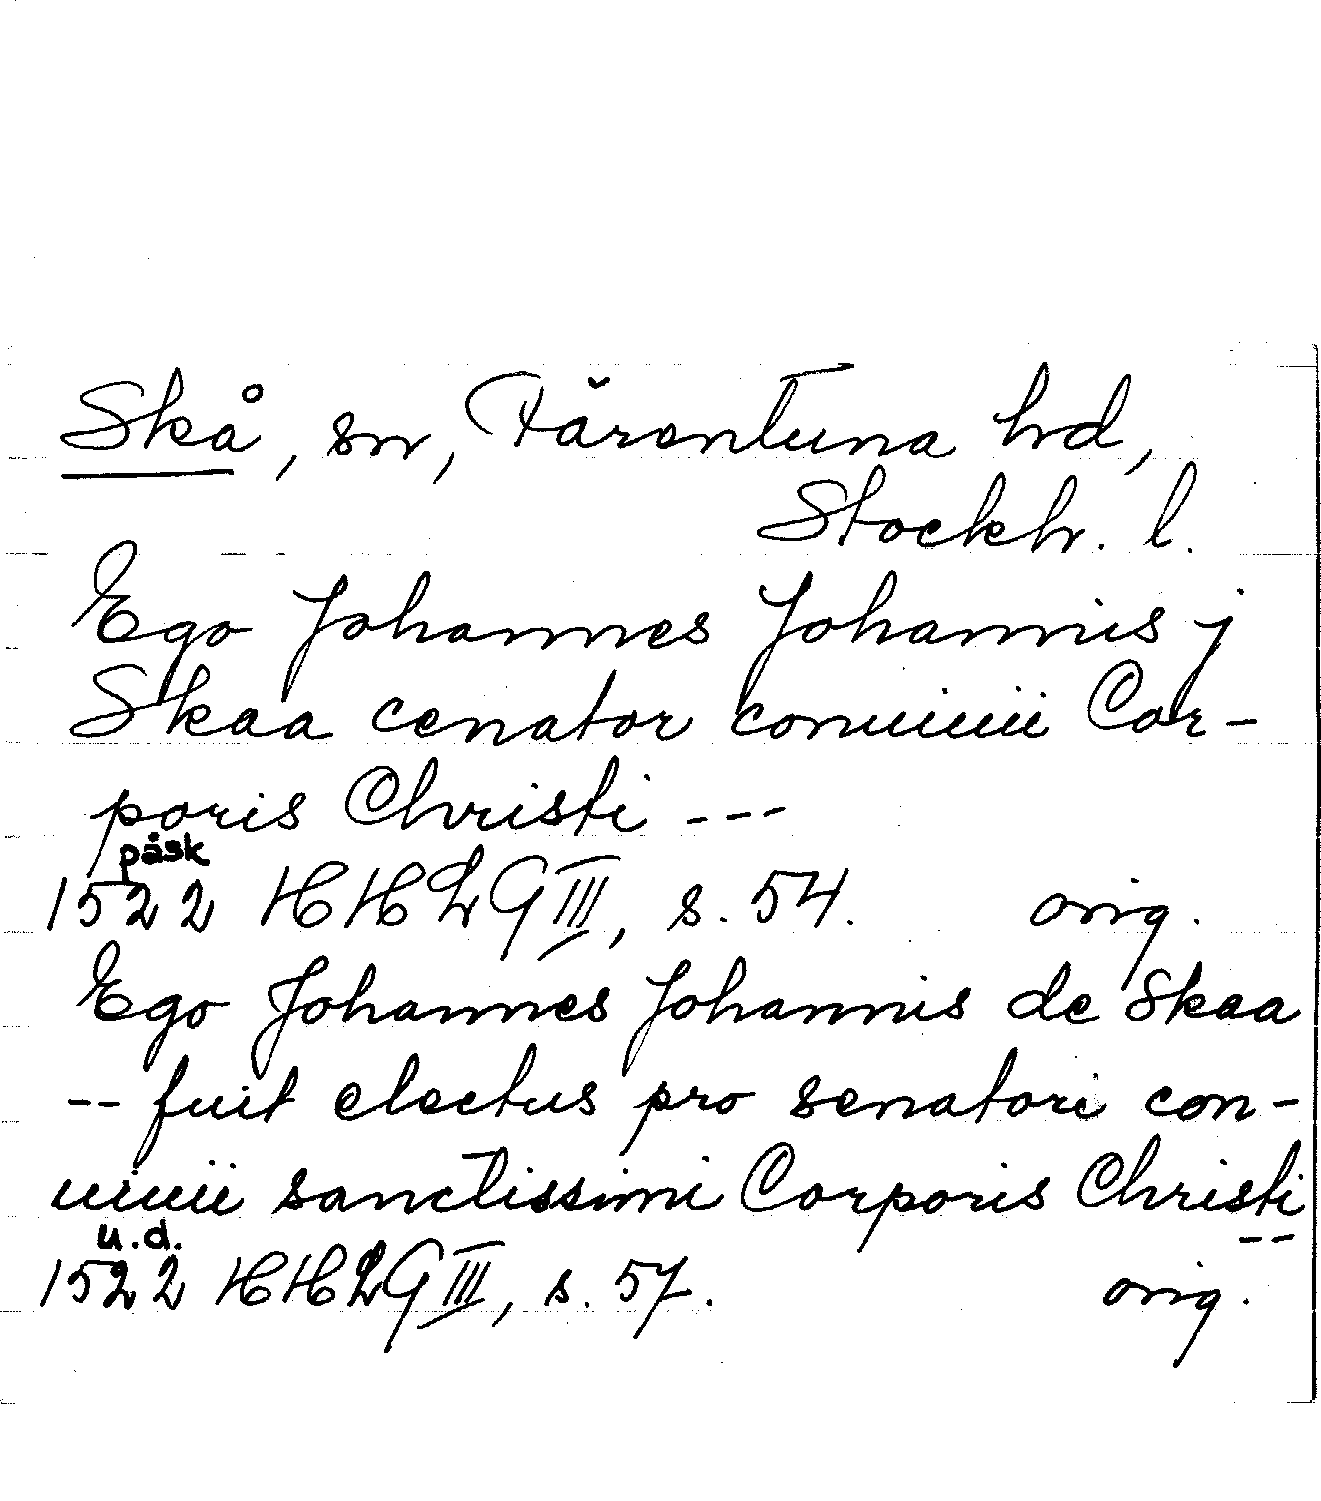 Skå, sn, Färentuna hd,
Stockh. l.
Ego Johannes Johannis j
Skaa cenator conuiuii Cor-
poris Christi ---
påsk
1522 HHLG III, s. 54. orig.
Ego Johannes Johannis de Skaa
-- fuit electus pro senatori con-
uiuii sanctissimi Corporis Christi
--
u.d.
1522 HHLG III, s. 57. orig.